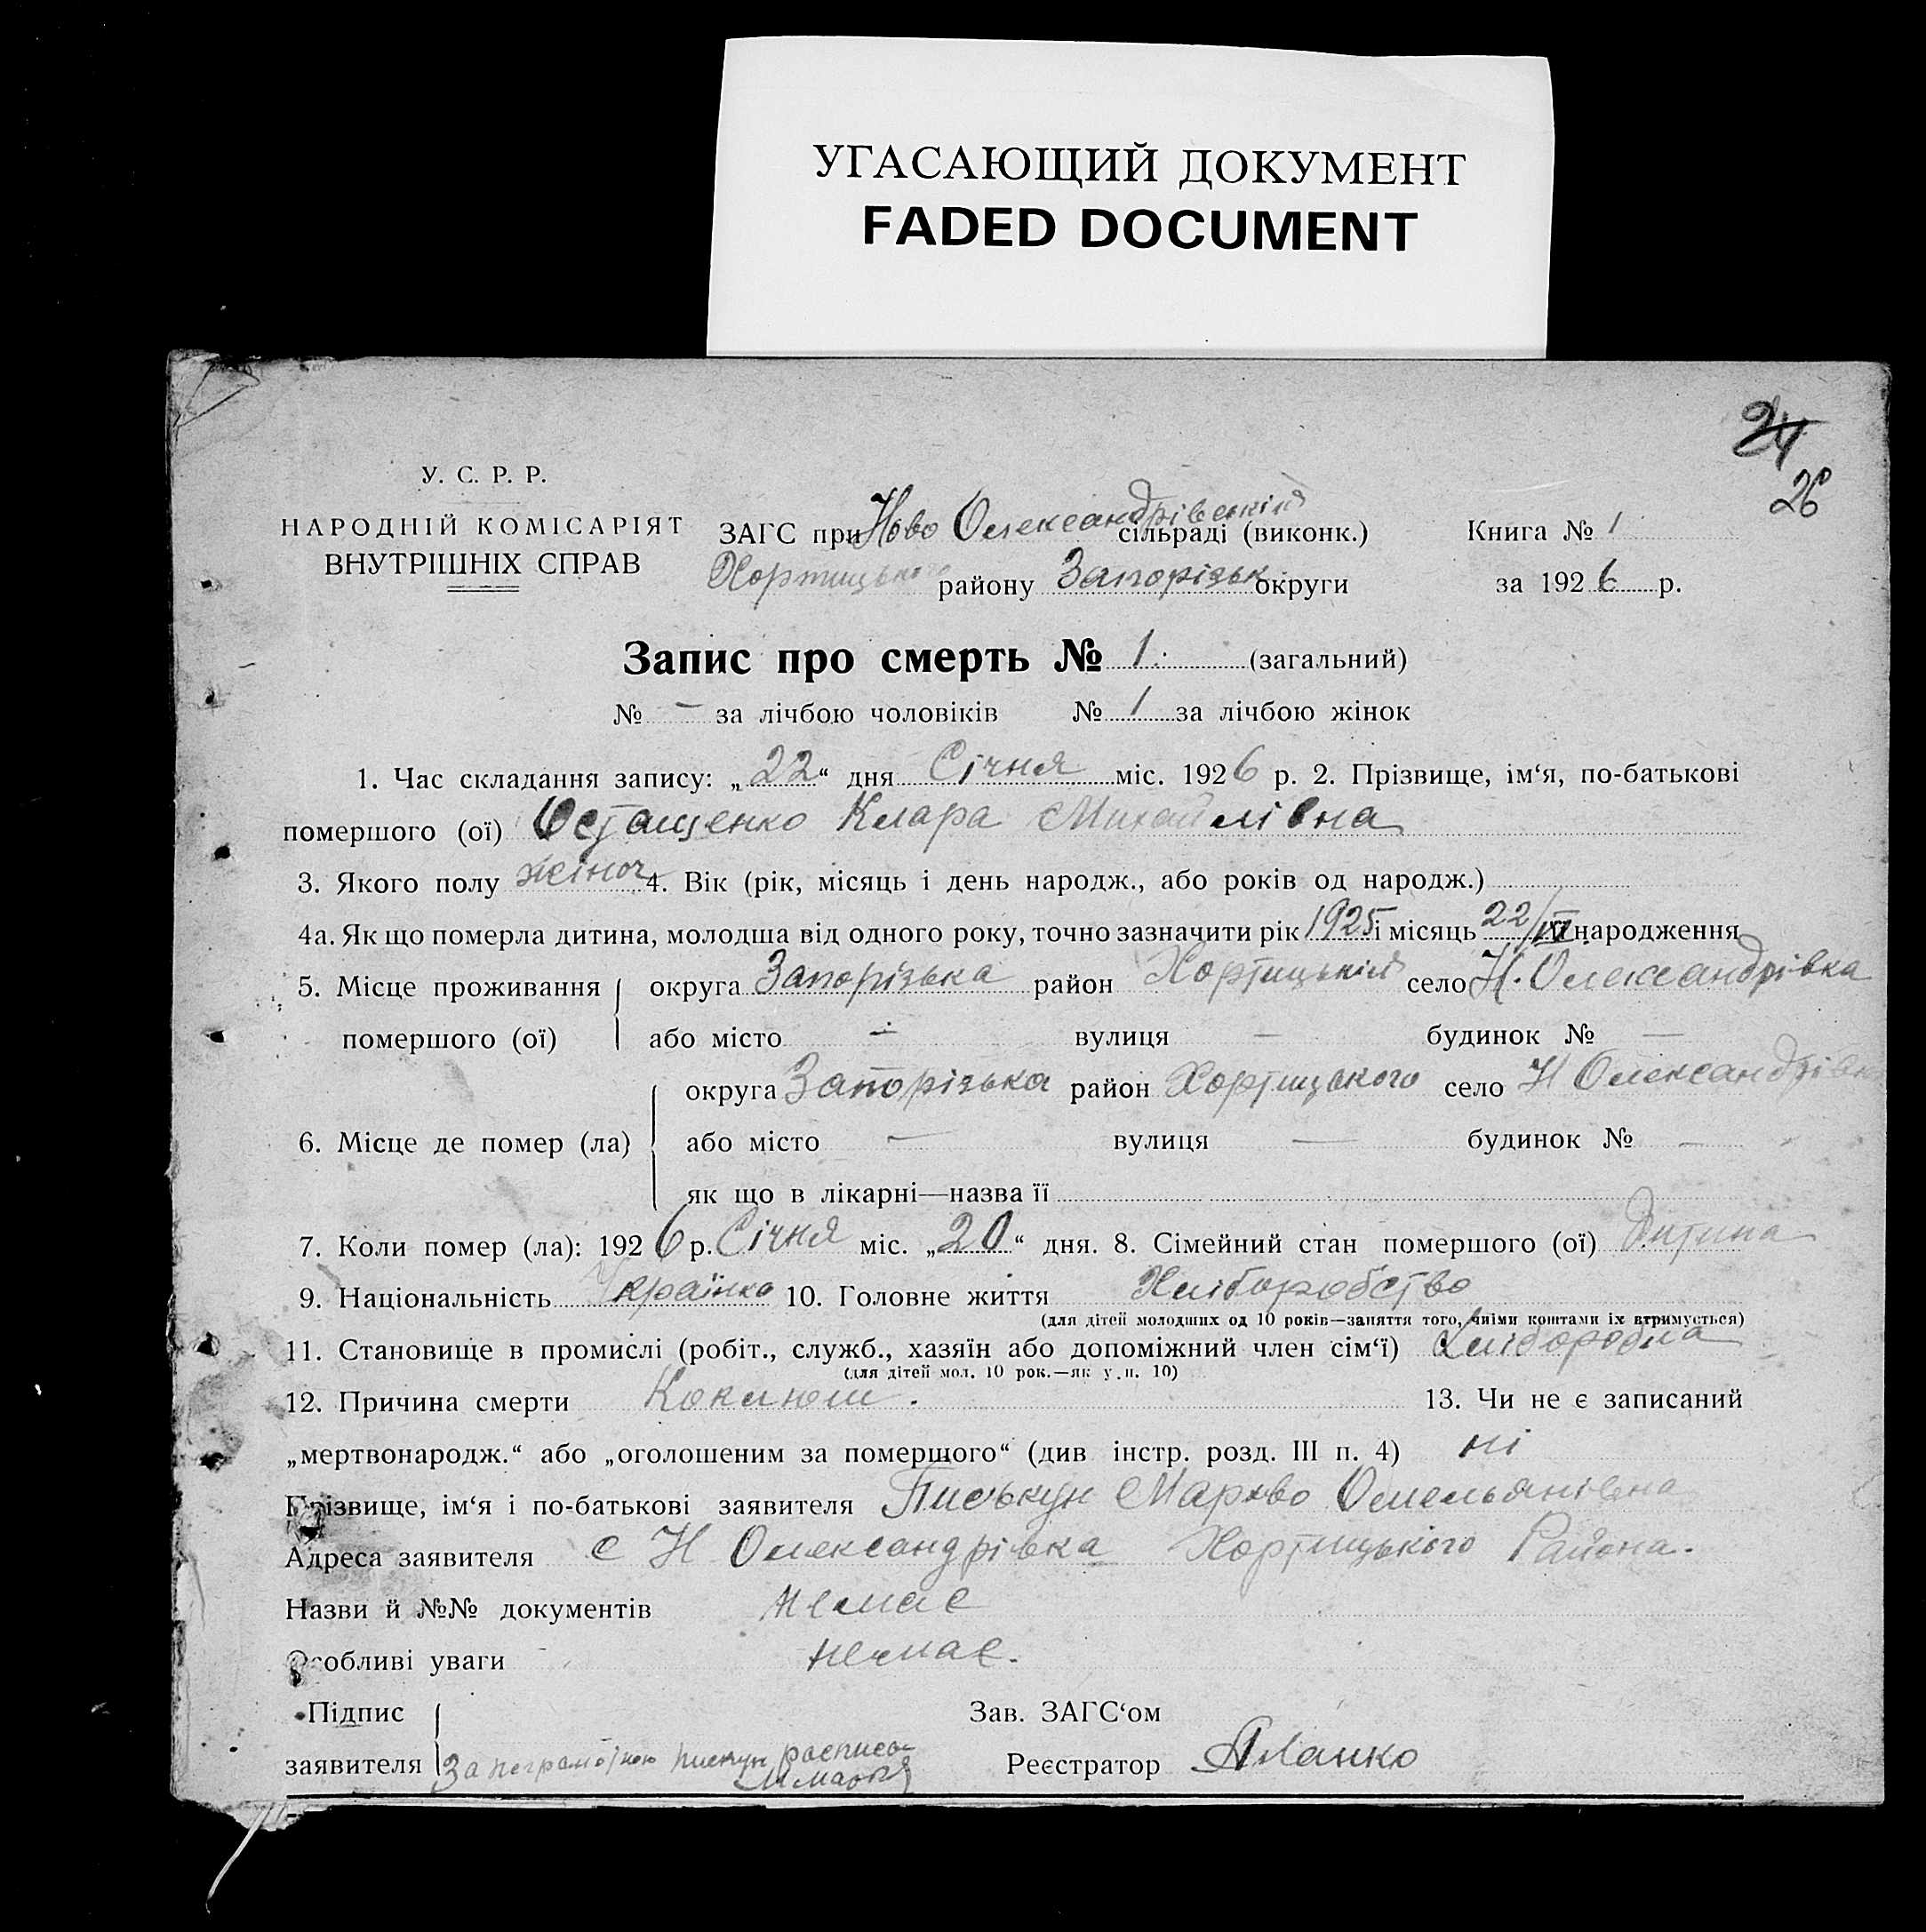 УГАСАЮЩИЙ ДОКУМЕНТ
FADED DOCUMENT
24
26
У. С. Р. Р.
НАРОДНІЙ КОМІСАРІЯТ
ВНУТРІШНІХ СПРАВ
ЗАГС при Ново Олександрівській сільраді (виконк.)
Хортицького району Запорізьк округи
Книга № 1
за 1926 р.
Запис про смерть № 1. (загальний)
№ — за лічбою чоловіків № 1 за лічбою жінок
1. Час складання запису: „22“ дня Січня міс. 1926 р. 2. Прізвище, ім‘я, по-батькові
помершого (ої) Остащенко Клара Михайлівна
3. Якого полу жіноч 4. Вік (рік, місяць і день народж., або років од народж.)
4а. Як що померла дитина, молодша від одного року, точно зазначити рік 1925 і місяць 22/ народження
5. Місце проживання округа Запорізька район Хортицький село Н. Олександрівка
помершого (ої) або місто — вулиця — будинок № —
округа Запорізька район Хортицького село Н Олександрівка
6. Місце де помер (ла) або місто — вулиця — будинок № —
як що в лікарні—назва її
7. Коли помер (ла): 1926 р. Січня міс. „20“ дня. 8. Сімейний стан помершого (ої) Дитина
9. Національність Українка 10. Головне життя Хліборобство
(для дітей молодших од 10 років—заняття того, чиїми коштами їх втримується)
11. Становище в промислі (робіт., служб., хазяїн або допоміжний член сім‘ї)
(для дітей мол. 10 рок.—як у п. 10)
12. Причина смерти Коклюш. 13. Чи не є записаний
„мертвонародж.“ або „оголошеним за помершого“ (див інстр. розд. III п. 4) ні
Прізвище, ім‘я і по-батькові заявителя Писькун Омельянівна
Адреса заявителя с Н Олександрівка Хортицького Района.
Назви й №№ документів немає
Особливі уваги немає.
Підпис
заявителя За неграмотною
Зав. ЗАГС‘ом
Реєстратор